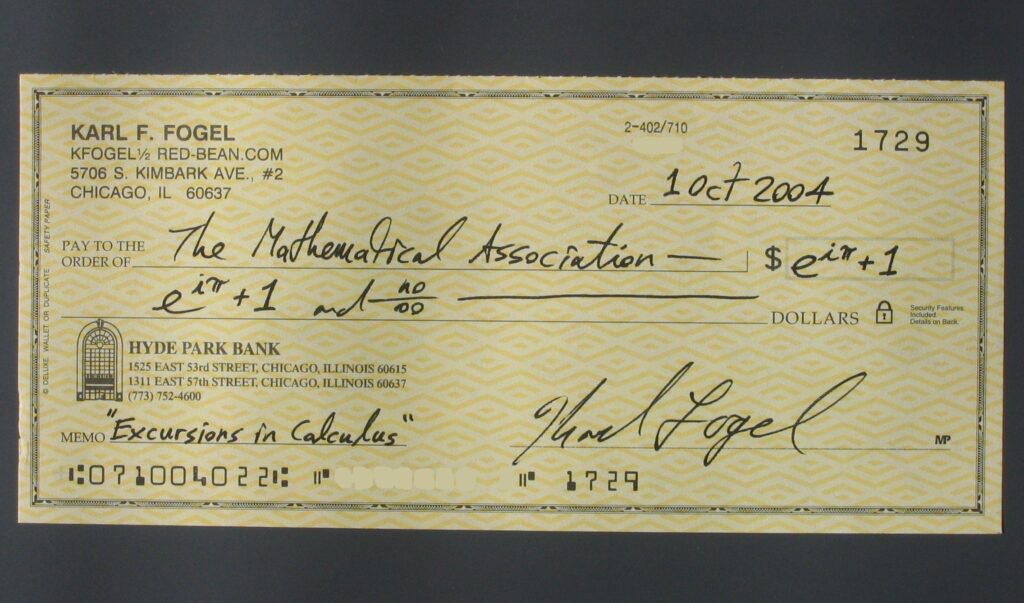 KARL F. FOGEL
KFOGEL½ RED-BEAN.COM
5706 S. KIMBARK AVE., #2
CHICAGO, IL 60637
2-402/710
1729
DATE 1 Oct 2004
PAY TO THE ORDER OF The Mathematical Association — $ e^{iπ}+1
e^{iπ} + 1 and no/00 DOLLARS
Security Features Included. Details on Back.
HYDE PARK BANK
1525 EAST 53rd STREET, CHICAGO, ILLINOIS 60615
1311 EAST 57th STREET, CHICAGO, ILLINOIS 60637
(773) 752-4600
MEMO "Excursions in Calculus"
Karl Fogel
MP
⑆071004022⑆ ⑈ ⑈ 1729
© DELUXE WALLET OR DUPLICATE SAFETY PAPER